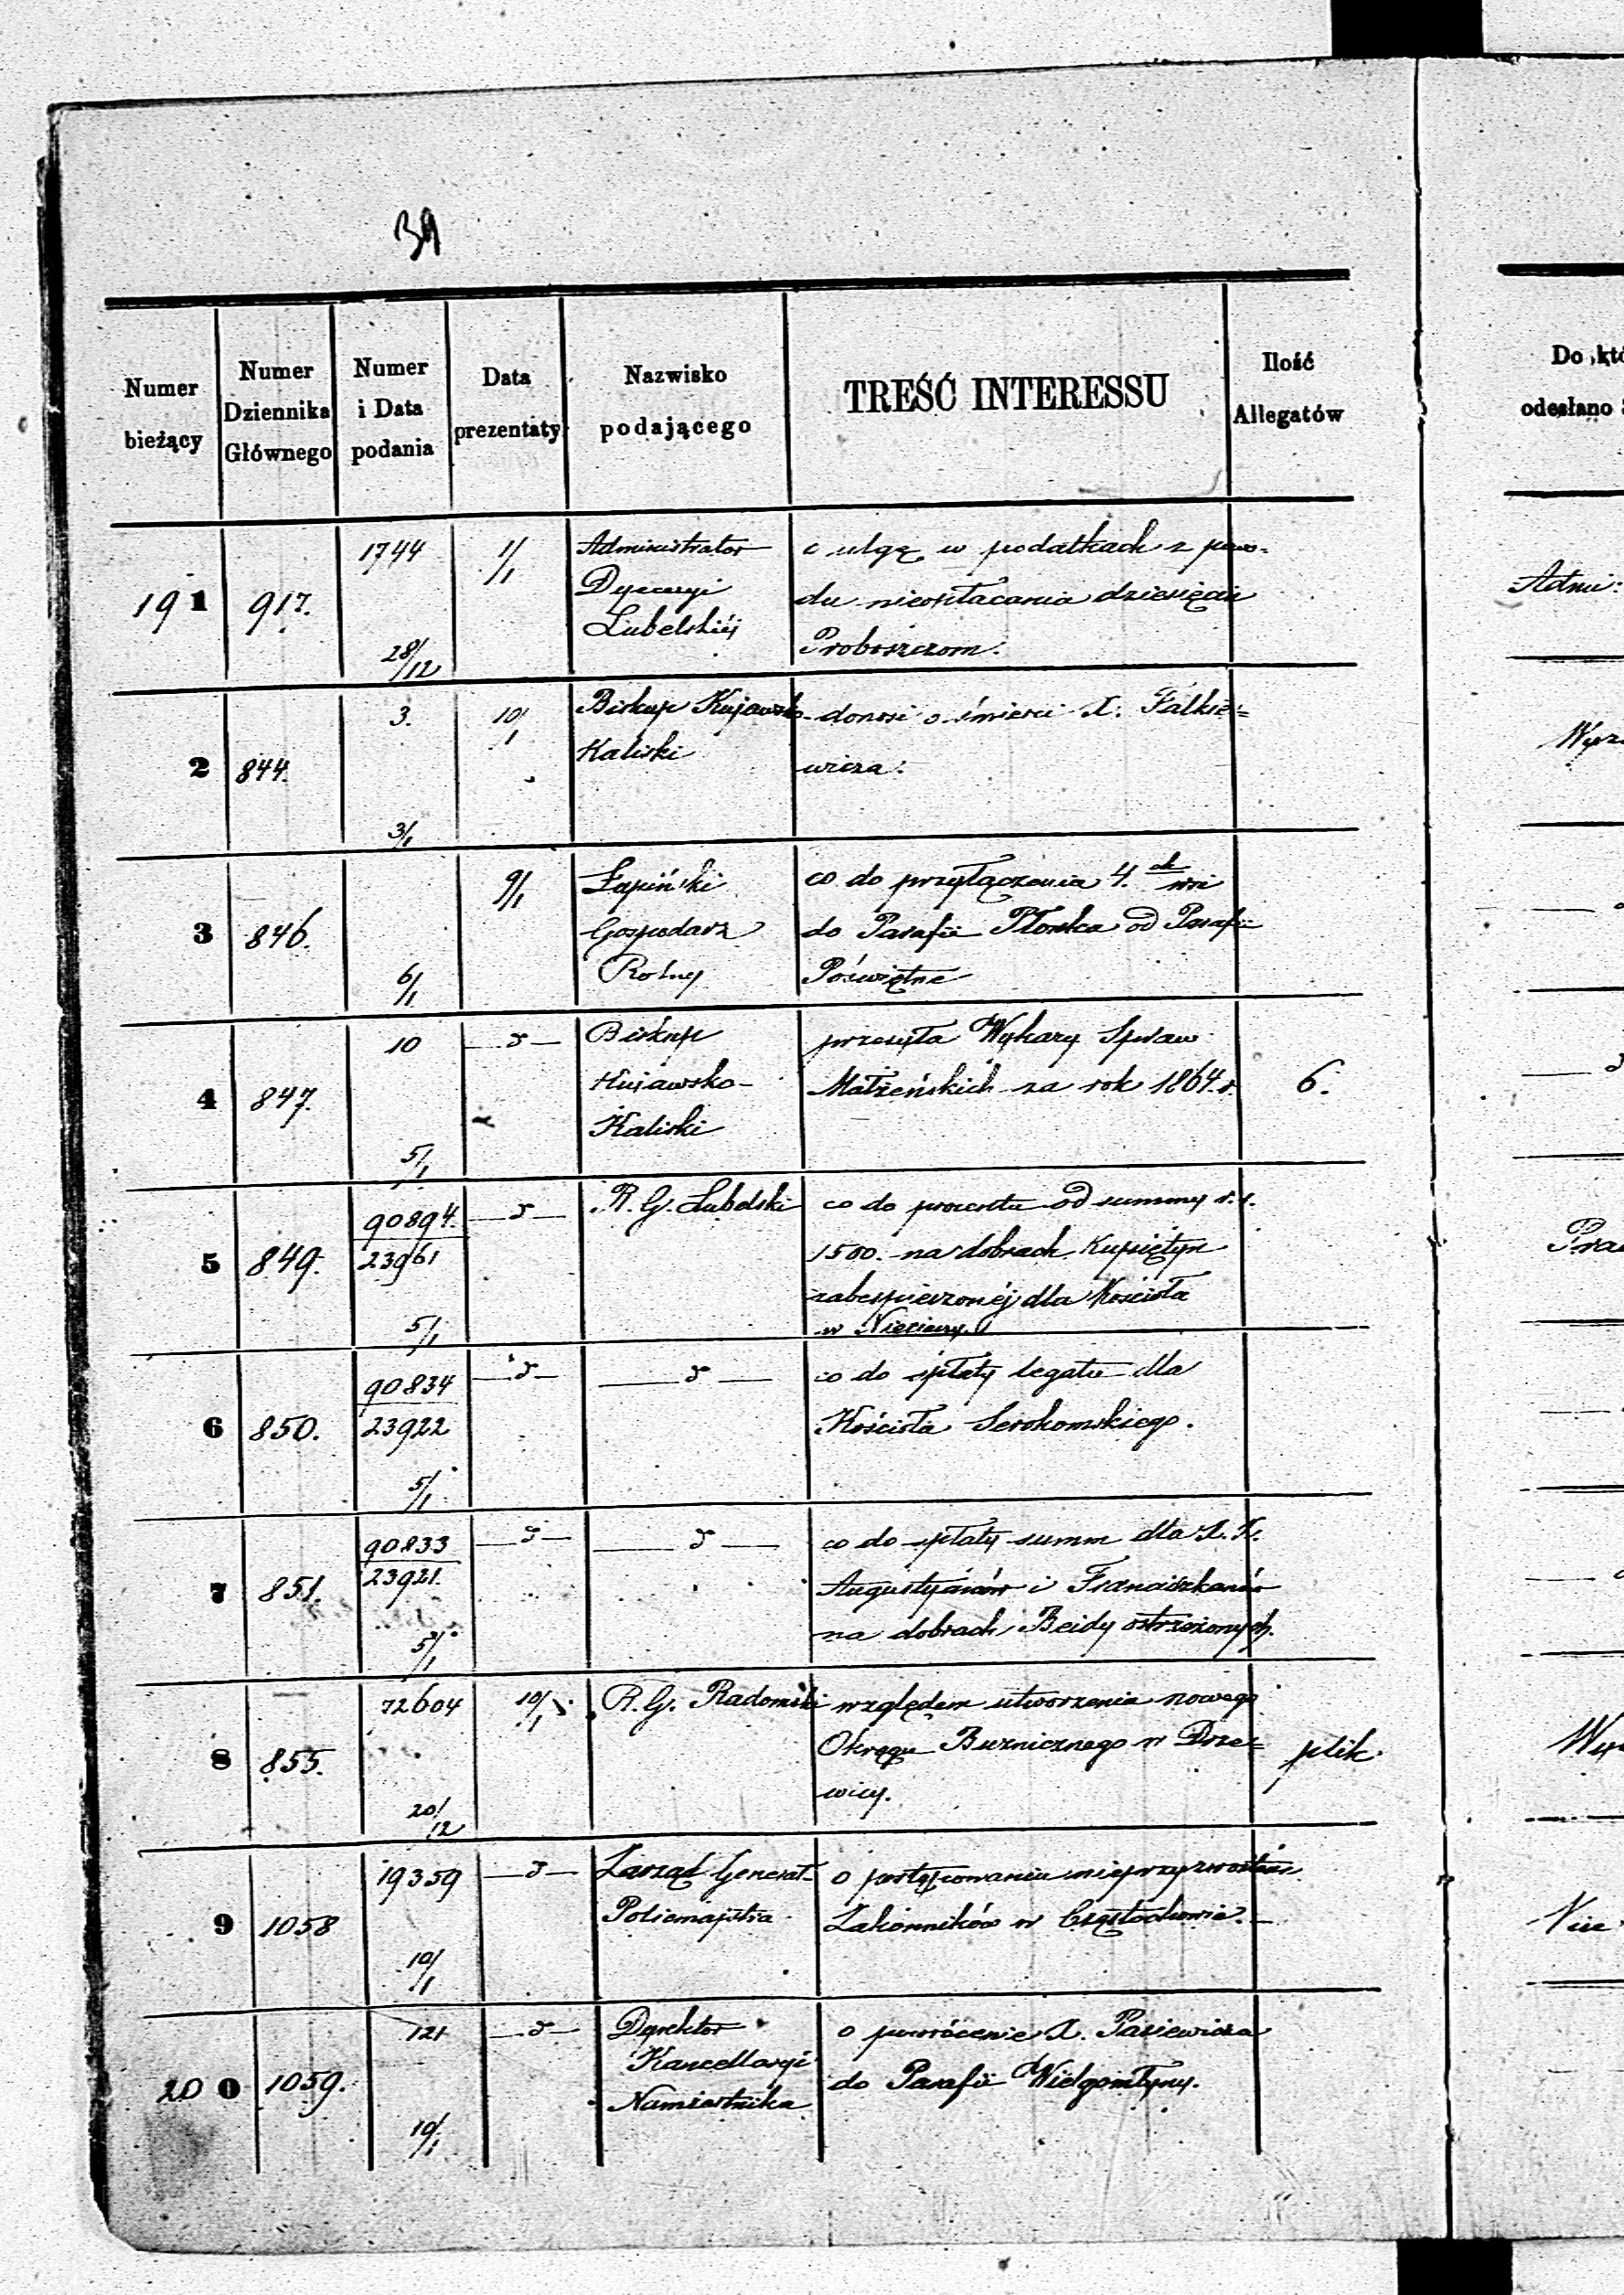 39
Numer bieżący | Numer Dziennika Głównego | Numer i Data podania | Data prezentaty | Nazwisko podającego | TREŚĆ INTERESSU | Ilość Allegatów | Do któ
odesłano
191 | 917. | 1744 28/12 | 1/1 | Administrator | o ulgę w podatkach z powo-
Dyecezyi | du nieopłacania dziesięcin | Admi:
Lubelskiéj | Proboszczom.
2 | 844. | 3. 3/1 | 10/1 | Biskup Kujawsko- | donosi o śmierci X. Falkie=
Kaliski | wicza.
3 | 846. | 6/1 | 9/1 | Łapiński | co do przyłączenia 4.ch wsi
Gospodarz | do Parafii Płonka od Parafii
Rolny | Poświętne
4 | 847. | 10 5/1 | —d— | Biskup | przesyła Wykazy Spraw
Kujawsko- | Małżeńskich za rok 1864.r. | 6.
Kaliski
5 | 849. | 90894. 23961 5/1 | —d— | R. G. Lubelski | co do procentu od summy r. s.
1500. na dobrach Kupiętyn
zabezpieczonéj dla Kościoła
w Nieciecy.
6 | 850. | 90834 23922 5/1 | —d— | —d— | co do spłaty legatu dla
Kościoła Serokomskiego.
7 | 851. | 90833 23921. 5/1 | —d— | —d— | co do spłaty summ dla X. X.
Augustyanów i Franciszkanów
na dobrach Bejdy ostrzeżonych.
8 | 855. | 72604 20/12 | 10/1 | R. G. Radomski | względem utworzenia nowego
Okręgu Bużnicznego w Drze= | plik.
wicy.
9 | 1058 | 19359 10/1 | —d— | Zarząd Generał- | o postępowaniu nieprzyzwoitém
Policmajstra | Zakonników w Częstochowie.—
200 | 1059. | 121 10/1 | —d— | Dyrektor | o powrócenie X. Pasiewicza
Kancellaryi | do Parafii Wielgomłyny.
Namiestnika